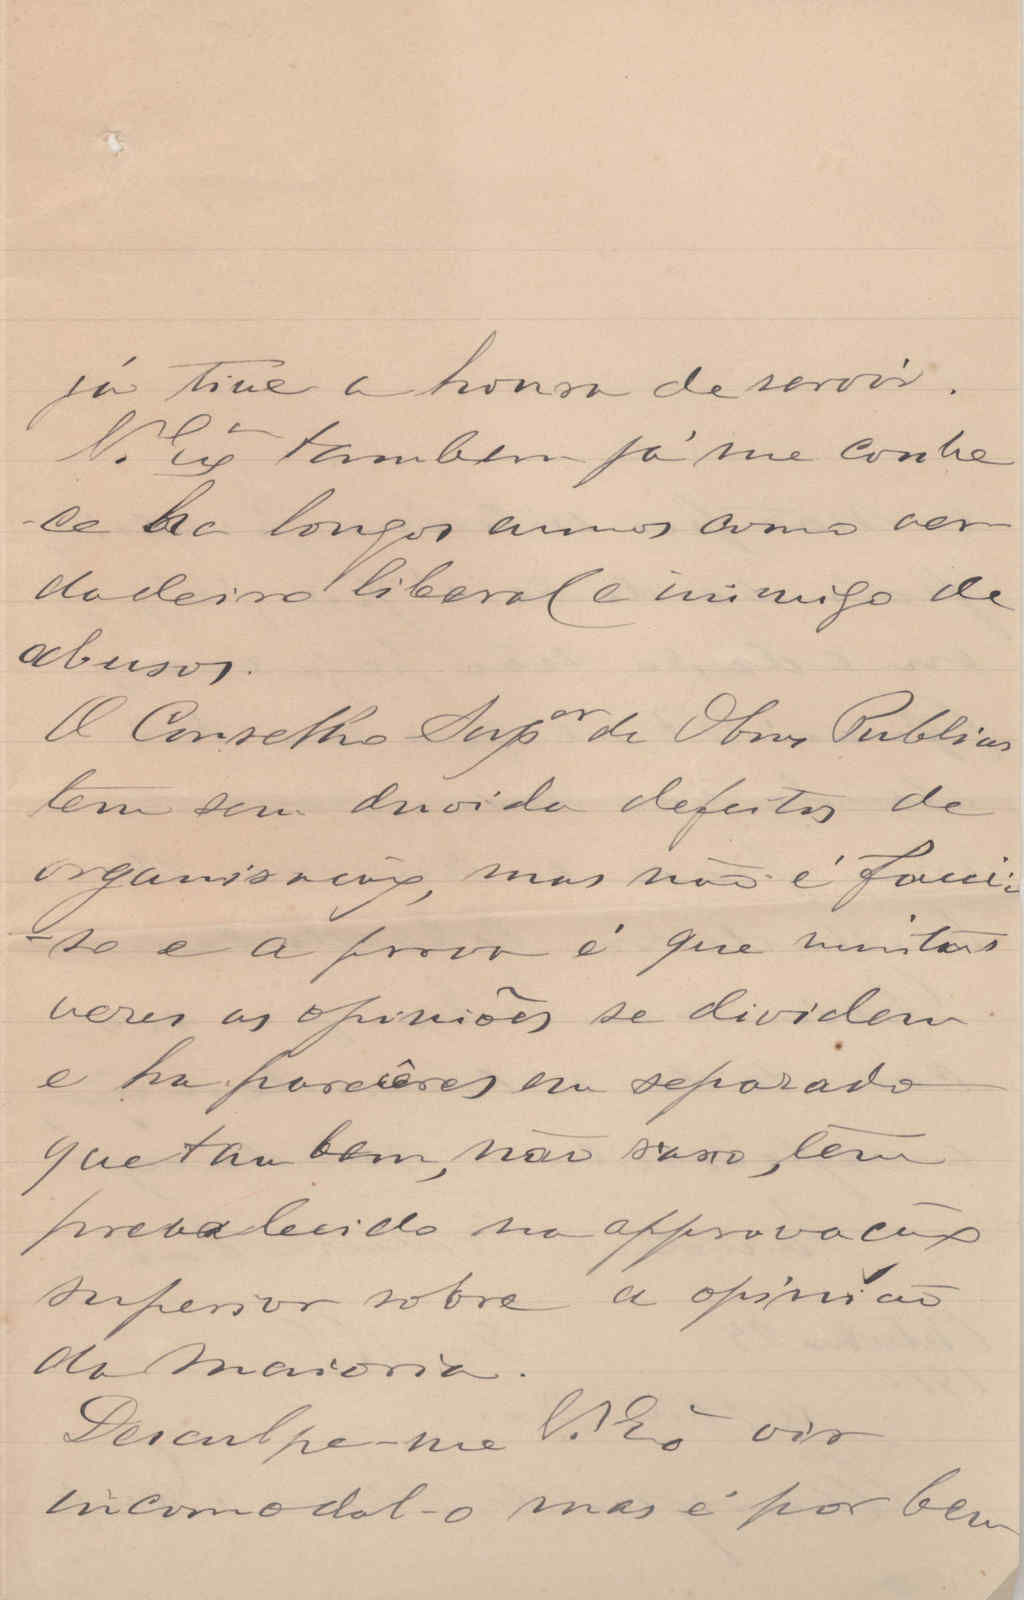 já tive a honra de servir.
V. Exª tambem já me conhe
-ce ha longos annos como ver
dadeiro liberal e inimigo de
abusos.
O Conselho Supºʳ de Obras Publicas
tem sem duvida defeitos de
organisação, mas não é facci-
-so e a prova é que muitas
vezes as opiniões se dividem
e ha parecêres em separado
que tambem, não raro, têm
prevalecido na approvação
superior sobre a opinião
da maioria.
Desculpe-me V. Exª vir
incomodal-o mas é por bem